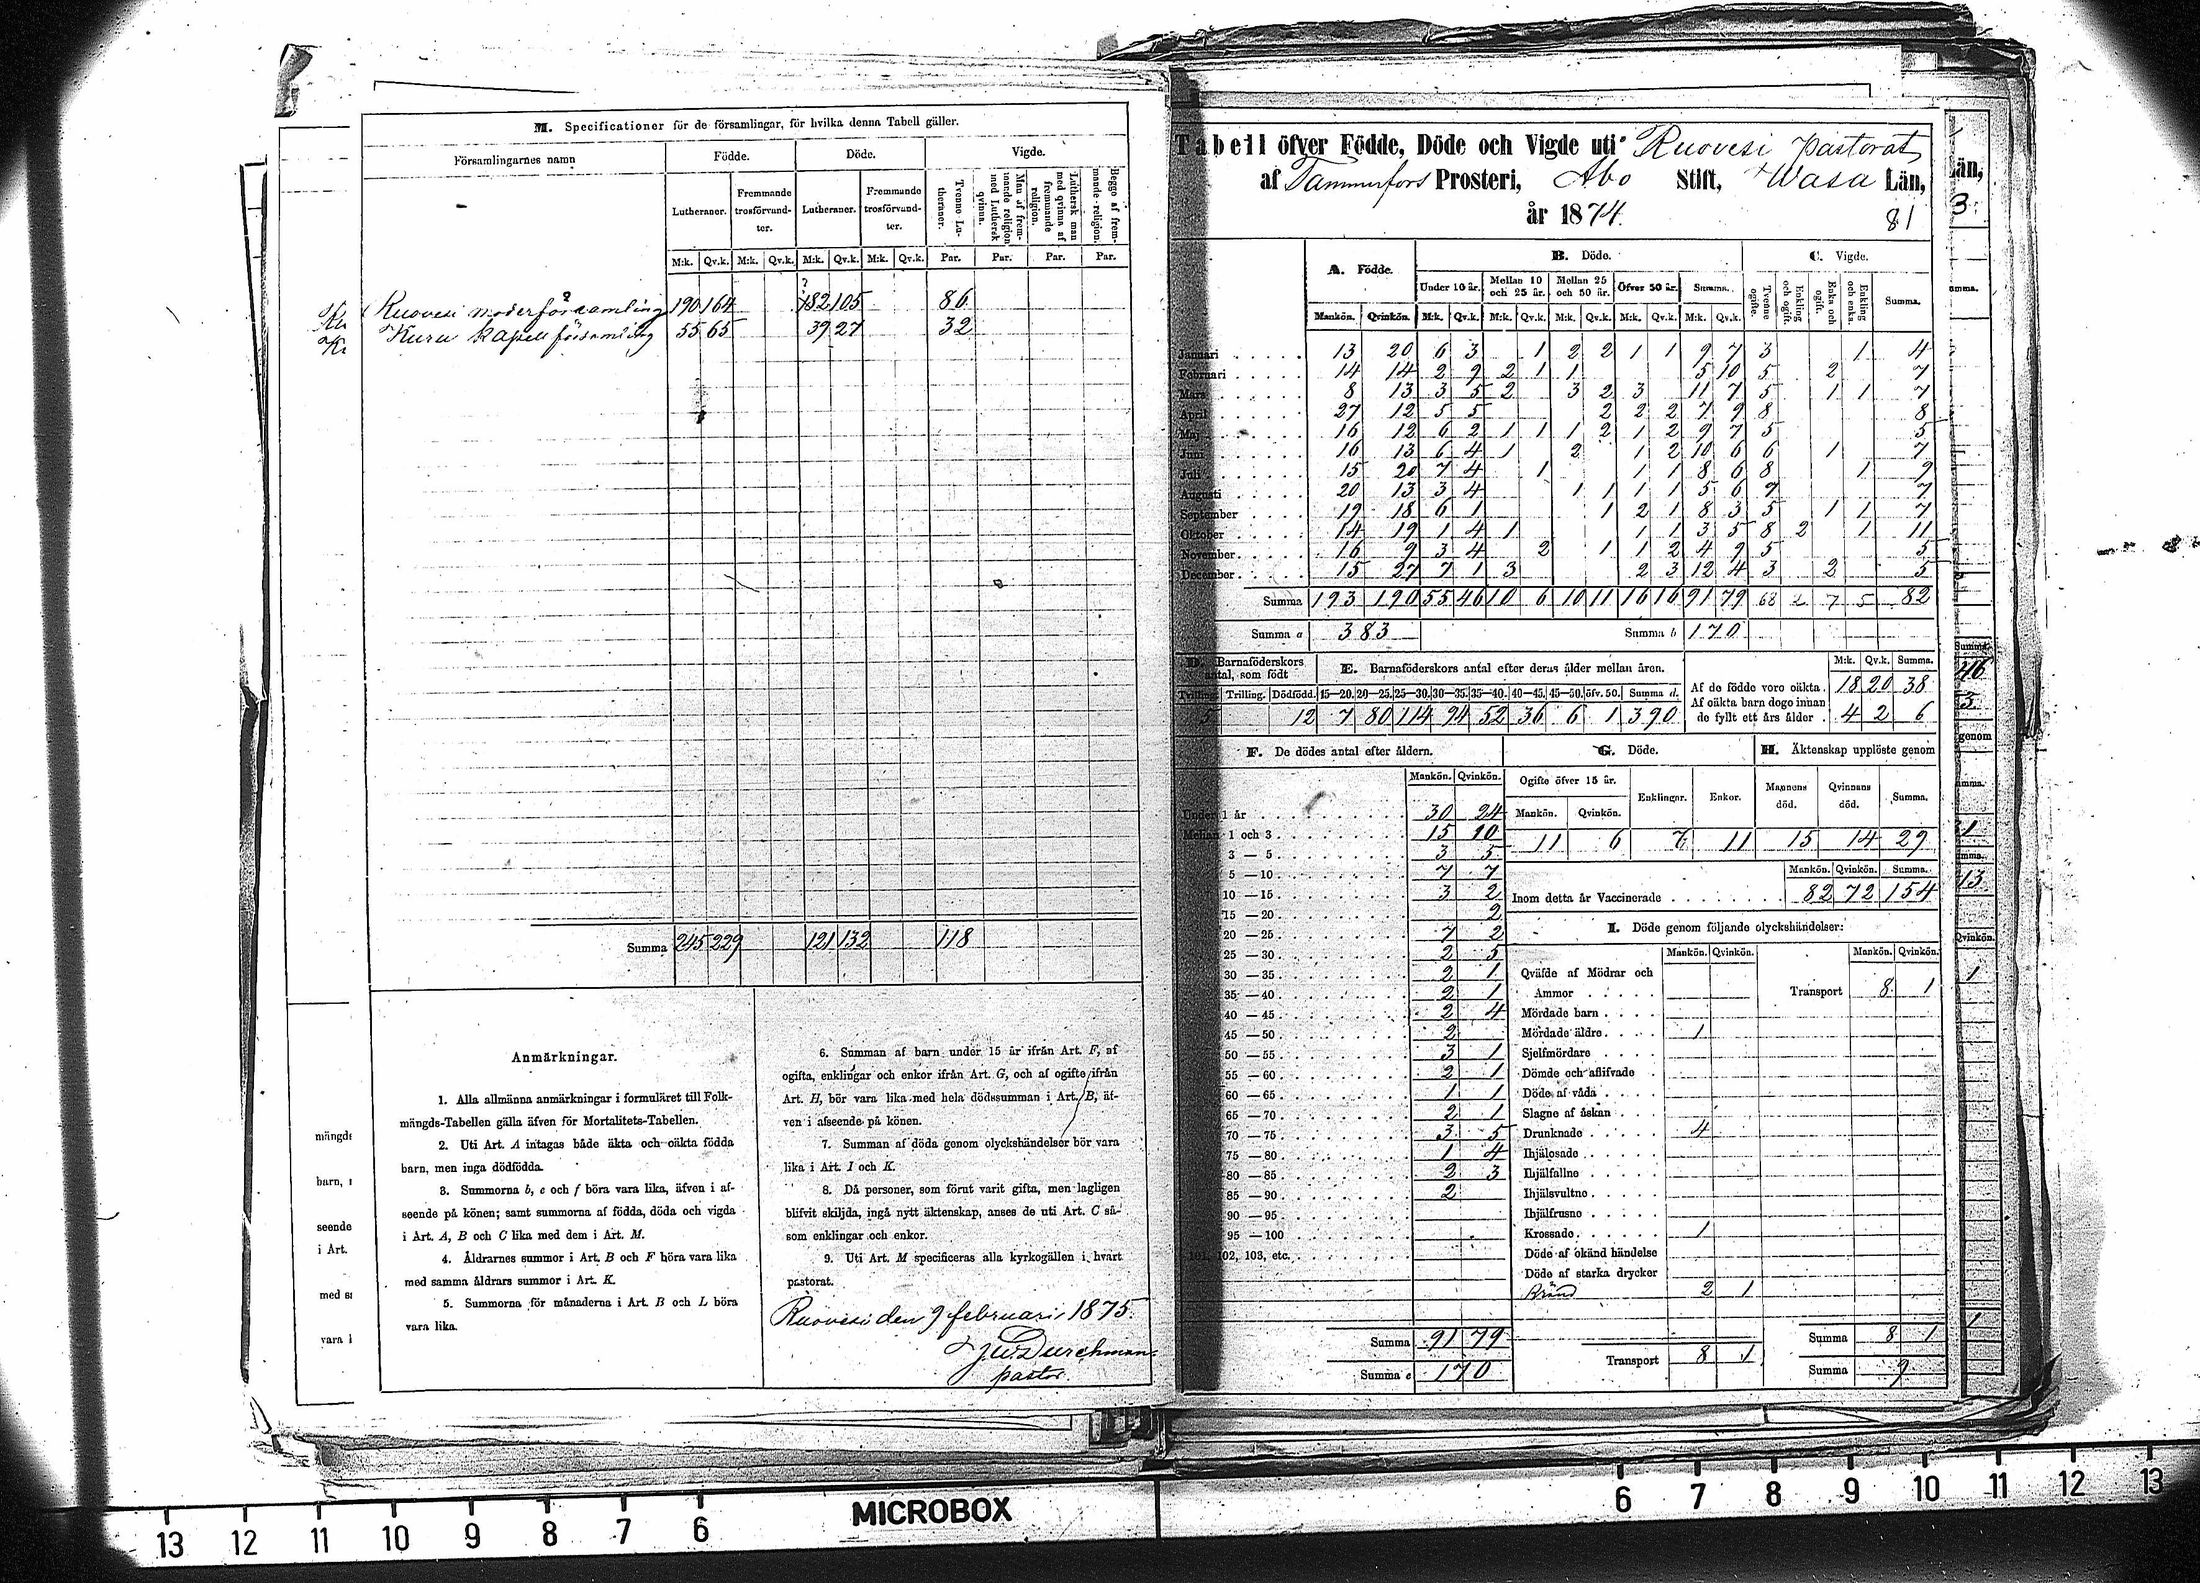 M. Specificationer för de församlingar, för hvilka denna Tabell gäller.
Församlingarnes namn Födde. Döde. Vigde.
Lutheraner. Fremmande trosförvandter. Lutheraner. Fremmande trosförvandter. Tvenne Lutheraner. Man af fremmande religion med Luthersk qvinna. Luthersk man med qvinna af fremmande religion. Begge af fremmande religion.
M:k. Qv.k. M:k. Qv.k. M:k. Qv.k. M:k. Qv.k. Par. Par. Par. Par.
Ruovesi moderförsamling 190 164 182 105 86
Kuru kapellförsamling 55 65 39 27 32
Summa 245 229 121 132 118
Anmärkningar.
1. Alla allmänna anmärkningar i formuläret till Folk-
mängds-Tabellen gälla äfven för Mortalitets-Tabellen.
2. Uti Art. A intagas både äkta och oäkta födda
barn, men inga dödfödda.
3. Summorna b, c och f böra vara lika, äfven i af-
seende på könen; samt summorna af födda, döda och vigda
i Art. A, B och C lika med dem i Art. M.
4. Åldrarnes summor i Art. B och F böra vara lika
med samma åldrars summor i Art. K.
5. Summorna för månaderna i Art. B och L böra
vara lika.
6. Summan af barn under 15 år ifrån Art. F, af
ogifta, enklingar och enkor ifrån Art. G, och af ogifte ifrån
Art. H, bör vara lika med hela dödssumman i Art. B, äf-
ven i afseende på könen.
7. Summan af döda genom olyckshändelser bör vara
lika i Art. I och K.
8. Då personer, som förut varit gifta, men lagligen
blifvit skiljda, ingå nytt äktenskap, anses de uti Art. C så-
som enklingar och enkor.
9. Uti Art. M specificeras alla kyrkogällen i hvart
pastorat.
Ruovesi den 9 februari 1875.
Durchman
pastor.
Tabell öfver Födde, Döde och Vigde uti Ruovesi pastorat
af Tammerfors Prosteri, Åbo Stift, Wasa Län,
år 1874.
81
A. Födde. B. Döde. C. Vigde.
Under 10 år. Mellan 10 och 25 år. Mellan 25 och 50 år. Öfver 50 år. Summa. Tvenne ogifte. Enkling och ogift. Enka och ogift. Enkling och enka. Summa.
Mankön. Qvinkön. M:k. Qv.k. M:k. Qv.k. M:k. Qv.k. M:k. Qv.k. M:k. Qv.k.
Januari 13 20 6 3 1 2 2 1 1 9 7 3 1 4
Februari 14 14 2 9 2 1 1 5 10 5 2 7
Mars 8 13 3 5 2 3 2 3 11 7 5 1 1 7
April 27 12 5 5 2 2 2 7 9 8 8
Maj 16 12 6 2 1 1 1 2 1 2 9 7 5 5
Juni 16 13 6 4 1 2 1 2 10 6 6 1 7
Juli 15 20 7 4 1 1 1 8 6 8 1 9
Augusti 20 13 3 4 1 1 1 1 5 6 7 7
September 19 18 6 1 1 2 1 8 3 5 1 1 7
Oktober 14 19 1 4 1 1 1 3 5 8 2 1 11
November 16 9 3 4 2 1 1 2 4 9 5 5
December 15 27 7 1 3 2 3 12 4 3 2 5
Summa 193 190 55 46 10 6 10 11 16 16 91 79 68 2 7 5 82
Summa a 383 Summa b 170
D. Barnaföderskors antal, som födt E. Barnaföderskors antal efter deras ålder mellan åren.
Tvilling. Trilling. Dödfödd. 15—20. 20—25. 25—30. 30—35. 35—40. 40—45. 45—50. öfv. 50. Summa d.
5 12 7 80 114 94 52 36 6 1 390
M:k. Qv.k. Summa.
Af de födde voro oäkta 18 20 38
Af oäkta barn dogo innan de fyllt ett års ålder 4 2 6
F. De dödes antal efter åldern.
Mankön. Qvinkön.
Under 1 år 30 24
Mellan 1 och 3 15 10
3 — 5 3 5
5 — 10 7 7
10 — 15 3 2
15 — 20 2
20 — 25 7 2
25 — 30 2 5
30 — 35 2 1
35 — 40 2 1
40 — 45 2 4
45 — 50 2
50 — 55 3 1
55 — 60 2 1
60 — 65 1 1
65 — 70 2 1
70 — 75 3 5
75 — 80 1 4
80 — 85 2 3
85 — 90 2
90 — 95
95 — 100
101, 102, 103, etc.
Summa 91 79
Summa c 170
G. Döde. H. Äktenskap upplöste genom
Ogifte öfver 15 år. Enklingar. Enkor. Mannens död. Qvinnans död. Summa.
Mankön. Qvinkön.
11 6 11 15 14 29
Mankön. Qvinkön. Summa.
Inom detta år Vaccinerade 82 72 154
I. Döde genom följande olyckshändelser:
Mankön. Qvinkön. Mankön. Qvinkön.
Qväfde af Mödrar och
Ammor
Transport 8 1
Mördade barn
Mördade äldre 1
Sjelfmördare
Dömde och aflifvade
Döde af våda
Slagne af åskan
Drunknade 4
Ihjälosade
Ihjälfallne
Ihjälsvultne
Ihjälfrusne
Krossade 1
Döde af okänd händelse
Döde af starka drycker
2 1
Transport 8 1
Summa 8 1
Summa 9
MICROBOX
13 12 11 10 9 8 7 6 6 7 8 9 10 11 12 13